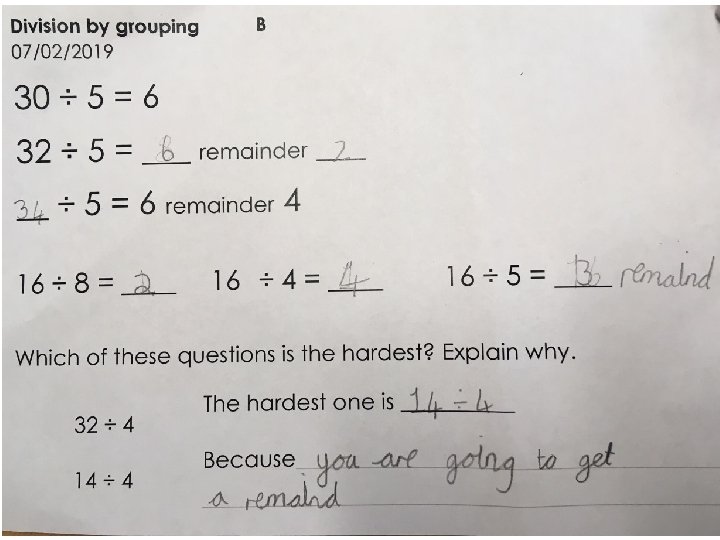 Division by grouping B
07/02/2019
30 ÷ 5 = 6
32 ÷ 5 = 6 remainder 2
34 ÷ 5 = 6 remainder 4
16 ÷ 8 = 2 16 ÷ 4 = 4 16 ÷ 5 = remaind
Which of these questions is the hardest? Explain why.
The hardest one is 14 ÷ 4
32 ÷ 4
Because you are going to get
14 ÷ 4
a remaind